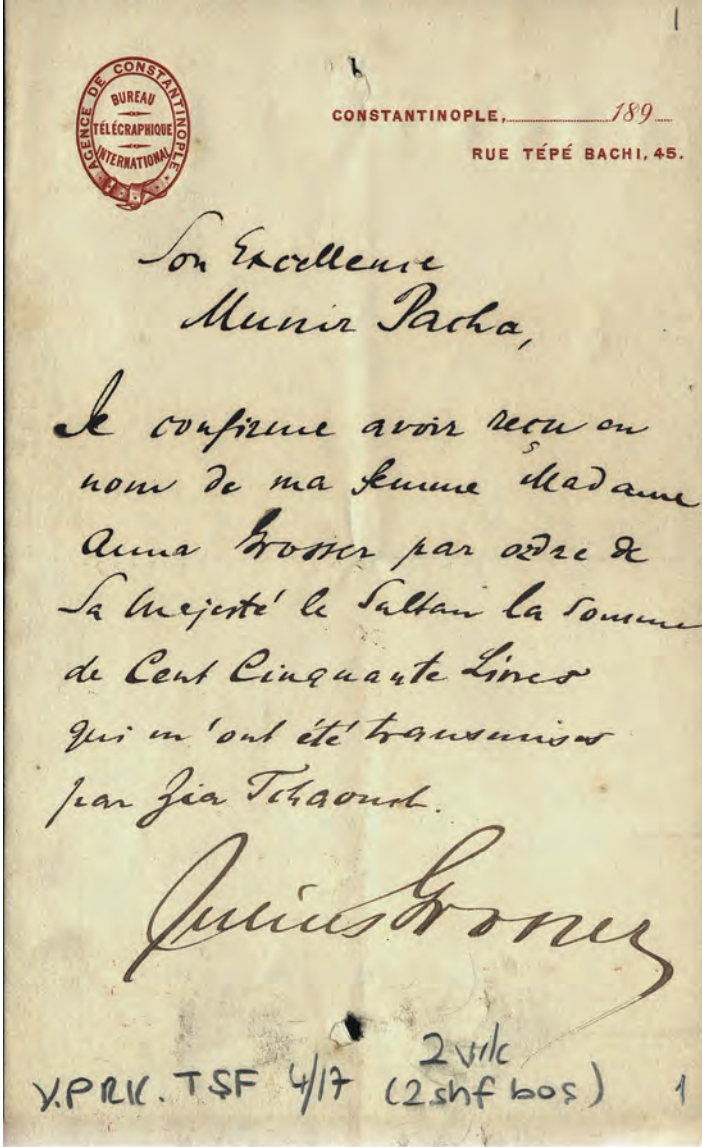 1
AGENCE DE CONSTANTINOPLE
BUREAU
TÉLÉGRAPHIQUE
INTERNATIONAL
CONSTANTINOPLE, 189
RUE TÉPÉ BACHI, 45.
Son Excellence
Munir Pacha,
Je confirme avoir reçu au
nom de ma femme Madame
Anna Grosser par ordre de
Sa Majesté le Sultan la Somme
de Cent Cinquante Livres
qui m'ont été transmises
par Zia Tchaouch.
Julius Grosser
2 vrk
Y.PRK.TŞF 4/17 (2 shf boş) 1